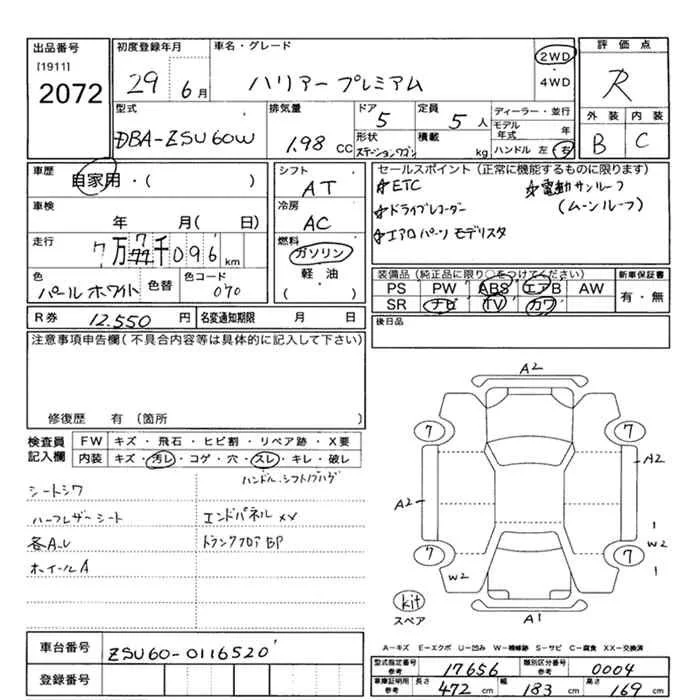 出品番号
[1911]
2072
初度登録年月
29 6月
車名・グレード
ハリアー プレミアム
2WD
4WD
評価点
R
外装 内装
B C
型式
DBA-ZSU60W
排気量
1.98 CC
ドア
5
定員
5人
形状
ステーションワゴン
積載
kg
ディーラー・並行
モデル年式 年
ハンドル 左 右
車歴
自家用・( )
車検
年 月( 日)
走行
7万 7千096 km
色
パールホワイト
色替
色コード
070
シフト
AT
冷房
AC
燃料
ガソリン
軽油
( )
セールスポイント(正常に機能するものに限ります)
☆ETC
☆電動サンルーフ
(ムーンルーフ)
☆ドライブレコーダー
☆エアロパーツ モデリスタ
装備品(純正品に限り○をつけてください)
PS PW ABS エアB AW
SR ナビ TV カワ
新車保証書
有・無
R券 12.550 円
名変通知期限 月 日
後日品
注意事項申告欄(不具合内容等は具体的に記入して下さい)
修復歴 有 (箇所 )
検査員記入欄
FW キズ・飛石・ヒビ割・リペア跡・X要
内装 キズ・汚レ・コゲ・穴・スレ・キレ・破レ
ハンドル.シフトノブハゲ
シートシワ
ハーフレザーシート
エンドパネル XX
各A.L
トランクフロアBP
ホイールA
車台番号
ZSU60-0116520
登録番号
A2
7
7
A2
A2
1
W2
1
7
7
W2
kit
スペア
A1
A-キズ E-エクボ U-凹み W-補修跡 S-サビ C-腐食 XX-交換済
型式指定番号 参考
17656
類別区分番号 参考
0004
車庫証明用 参考
長さ 472 cm
幅 183 cm
高さ 169 cm